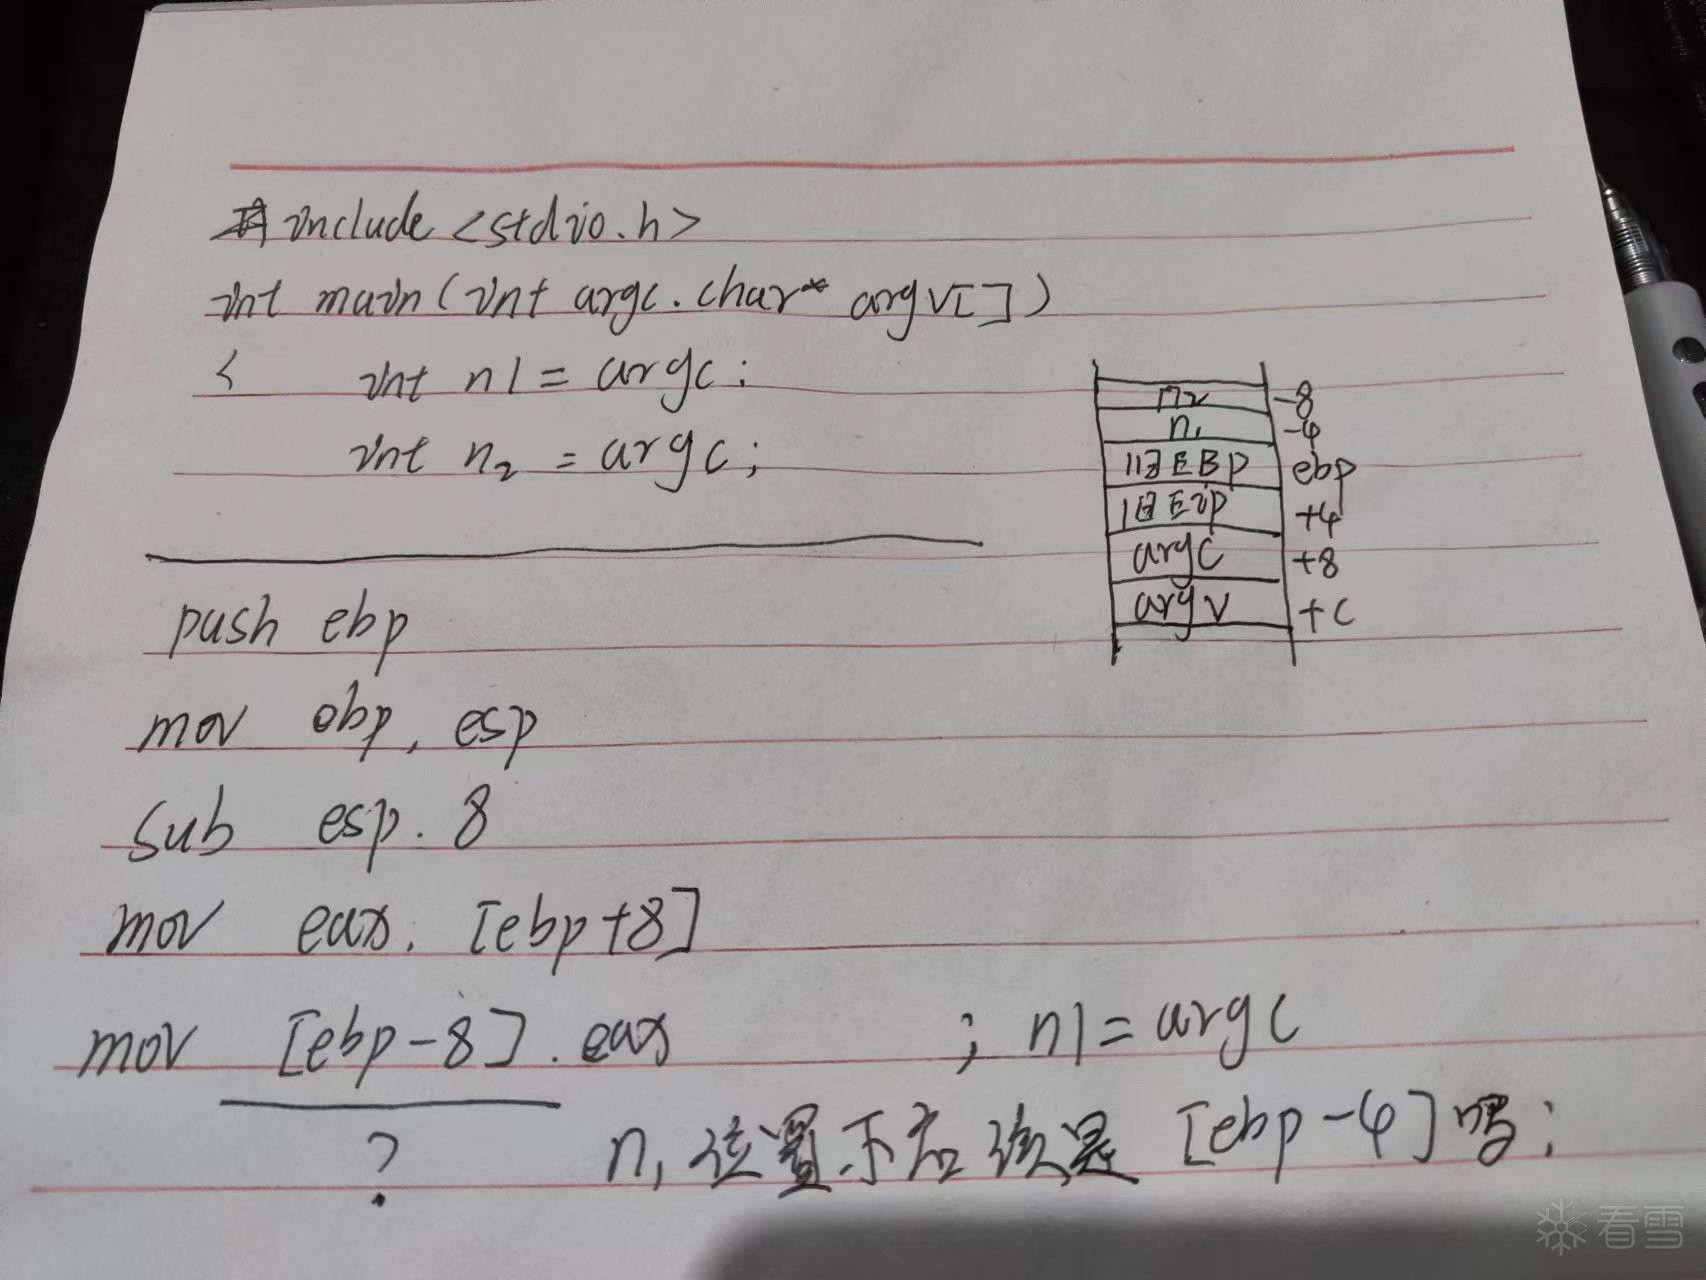 #include <stdio.h>
int main(int argc. char* argv[])
{ int n1 = argc;
int n2 = argc;
n2 -8
n1 -4
旧EBP ebp
旧Eip +4
argc +8
argv +C
push ebp
mov ebp, esp
sub esp. 8
mov eax. [ebp+8]
mov [ebp-8]. eax ; n1=argc
? n1位置不应该是[ebp-4]吗;
看雪